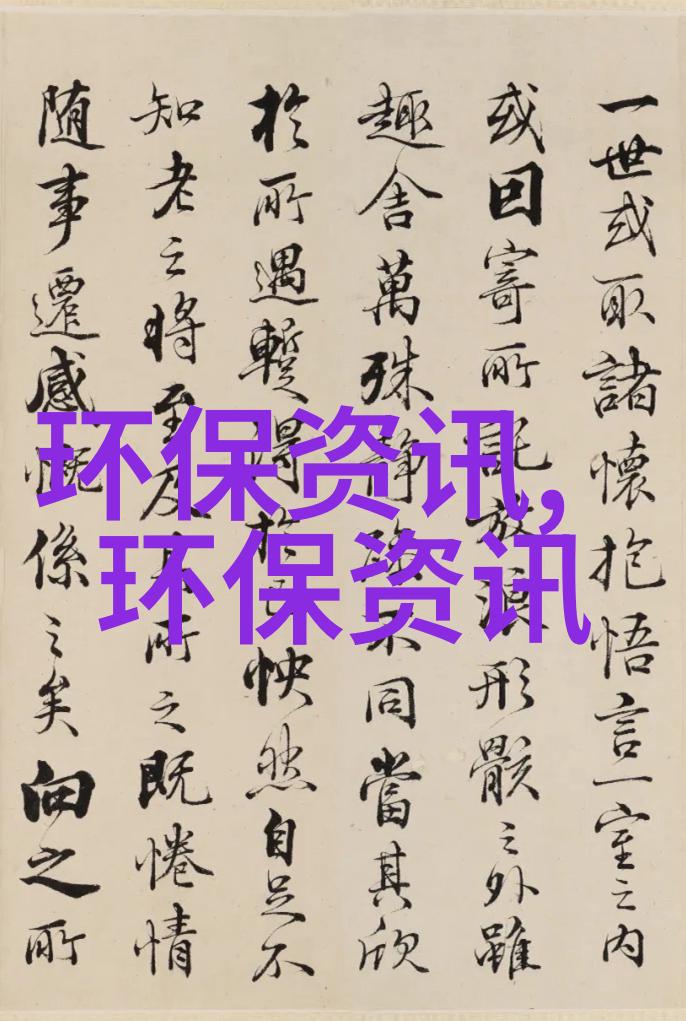 一世或取諸懷抱悟言一室之内
或因寄所託放浪形骸之外雖
趣舍萬殊静躁不同當其欣
於所遇蹔得於己怏然自足不
知老之将至及其所之既惓情
随事遷感慨係之矣向之所
环保资讯,
环保资讯